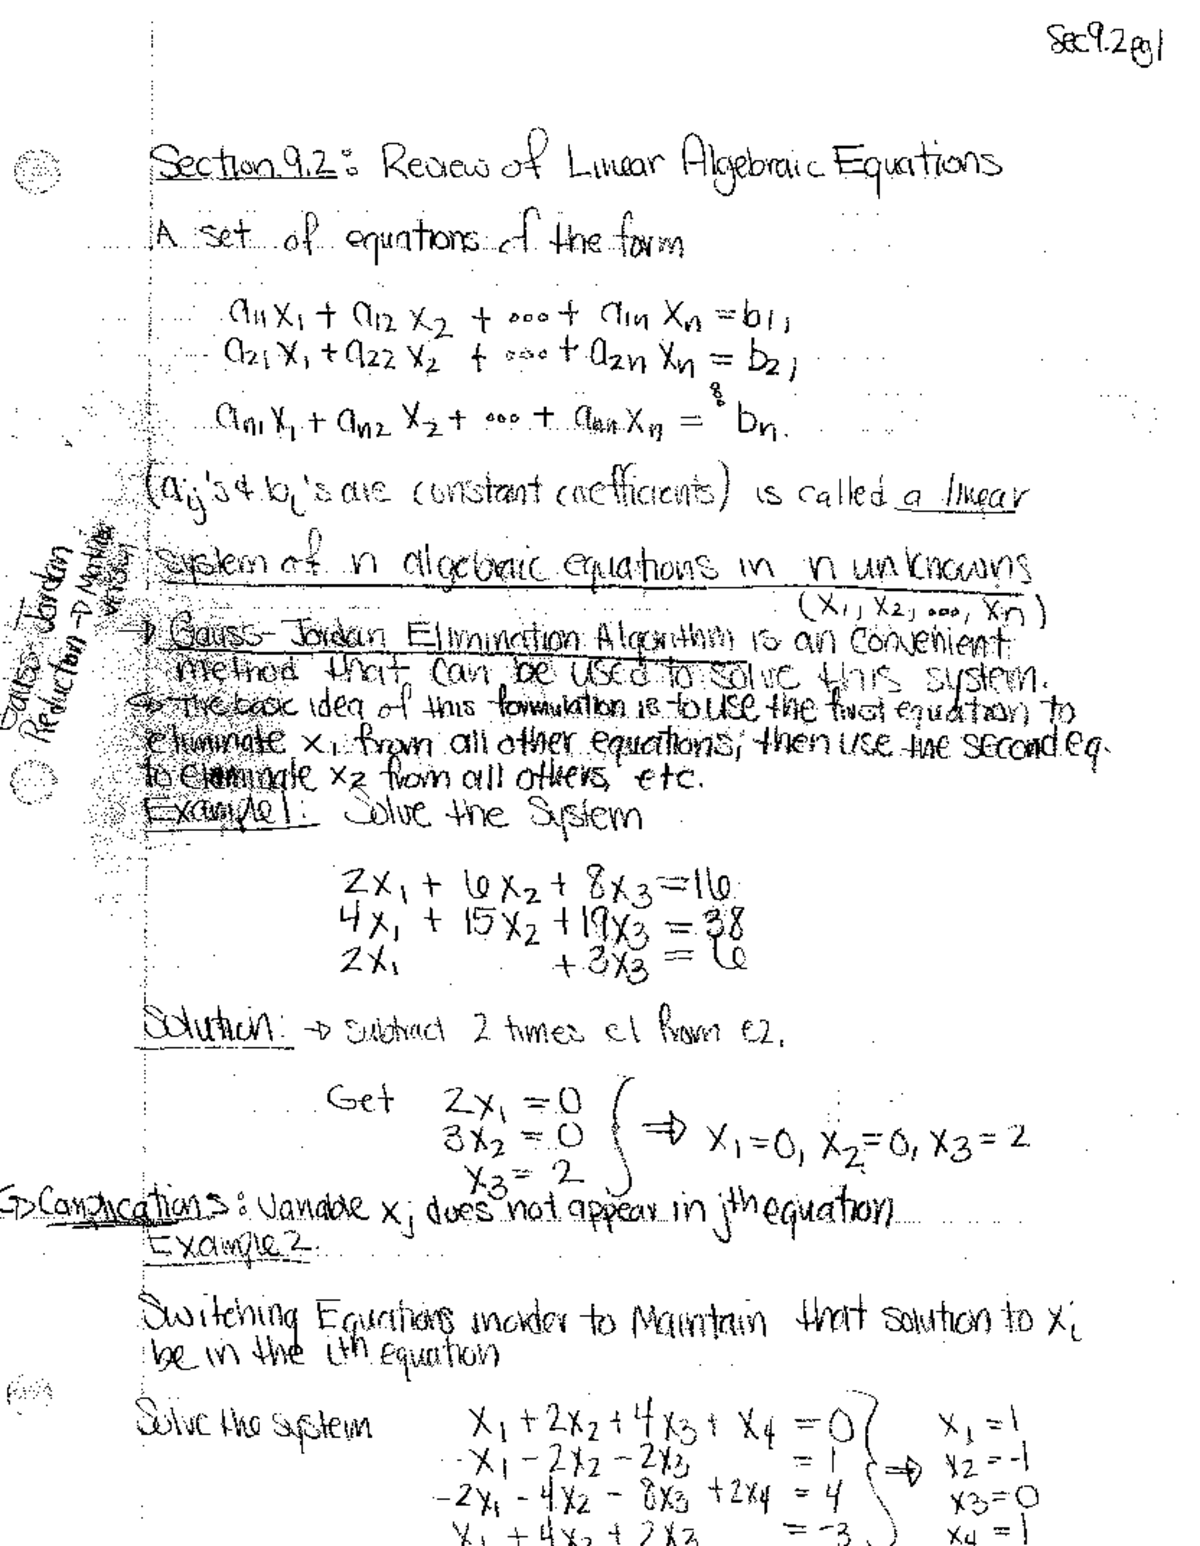 Sec 9.2 pg 1
Section 9.2: Review of Linear Algebraic Equations
A set of equations of the form
a11 x1 + a12 x2 + ... + a1n xn = b1,
a21 x1 + a22 x2 + ... + a2n xn = b2,
⋮
an1 x1 + an2 x2 + ... + ann xn = bn.
(aij's & bi's are constant coefficients) is called a linear
system of n algebraic equations in n unknowns
(x1, x2, ..., xn)
Gauss-Jordan
Reduction → Matrix
version
→ Gauss-Jordan Elimination Algorithm is an convenient
method that can be used to solve this system.
↪ The basic idea of this formulation is to use the first equation to
eliminate x1 from all other equations; then use the second eq.
to eliminate x2 from all others, etc.
Example 1: Solve the System
2x1 + 6x2 + 8x3 = 16
4x1 + 15x2 + 19x3 = 38
2x1 + 3x3 = 6
Solution: → subtract 2 times e1 from e2.
Get 2x1 = 0
3x2 = 0 } ⇒ x1 = 0, x2 = 0, x3 = 2
x3 = 2
↪ Complications: Variable xj does not appear in jth equation
Example 2.
Switching Equations inorder to Maintain that solution to xi
be in the ith equation
Solve the system x1 + 2x2 + 4x3 + x4 = 0 x1 = 1
-x1 - 2x2 - 2x3 = 1 } ⇒ x2 = -1
-2x1 - 4x2 - 8x3 + 2x4 = 4 x3 = 0
x1 + 4x2 + 2x3 = -3 x4 = 1